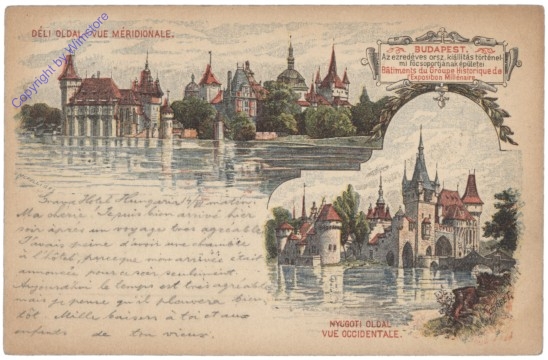 DÉLI OLDAL - VUE MÉRIDIONALE.
Copyright by Wimstore
BUDAPEST.
Az ezredéves orsz. kiállitás történel-
mi főcsoportjának épületei
Bâtiments du Groupe Historique de
l'Exposition Millénaire.
Grand Hotel Hungaria matin
Ma chérie. Je suis bien arrivé hier
soir après un voyage très agréable.
J'avais peine d'avoir une chambre
à l'Hôtel, presque non arrivés était
annoncée pour ce soir seulement
Aujourd'hui le temps est très agréable
mais je pense qu'il pleuvera bien-
tôt Mille baisers à toi et aux
enfants de ton vieux.
NYUGOTI OLDAL
VUE OCCIDENTALE.